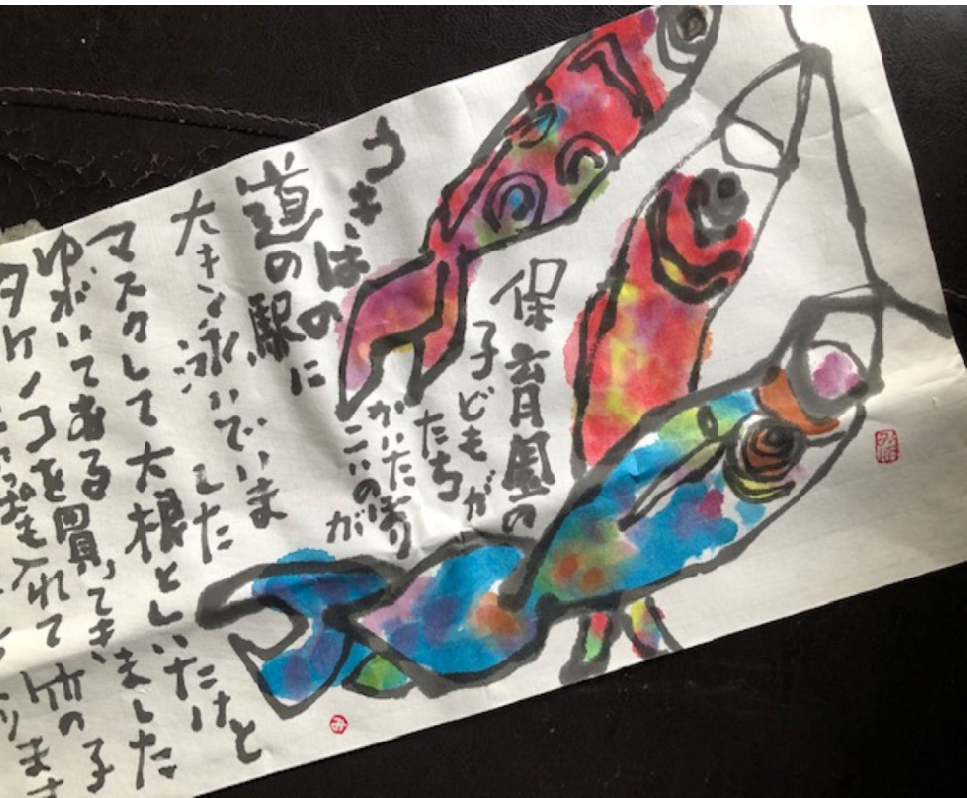 保育園の
子どもたちが
かいた
こいのぼりが
うきはの
道の駅に
大きく泳いでいま
した
マスクして大根としいたけと
ゆがいてある
タケノコを買ってきました
入れて竹の子
ります
み